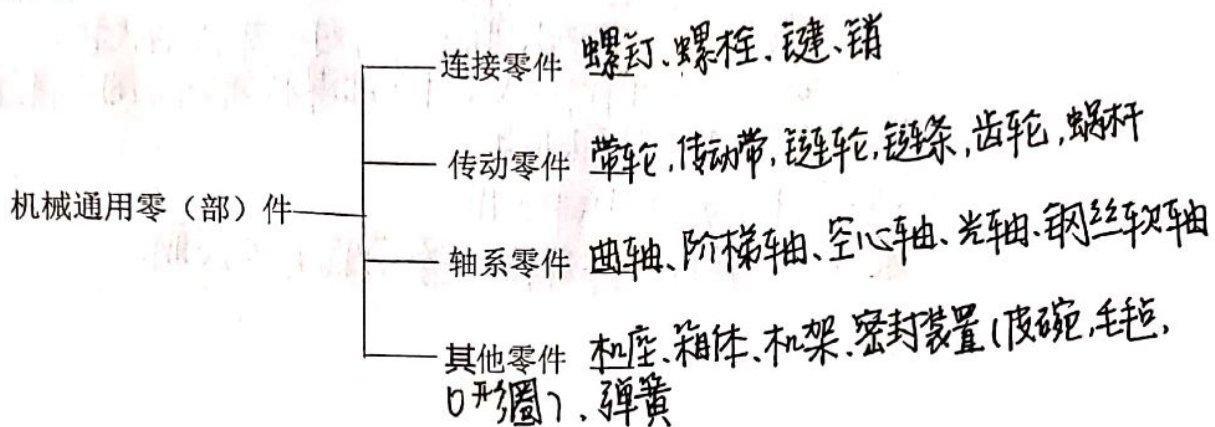 连接零件 螺钉、螺栓、键、销
传动零件 带轮,传动带,链轮,链条,齿轮,蜗杆
机械通用零（部）件
轴系零件 曲轴、阶梯轴、空心轴、光轴、钢丝软轴
其他零件 机座、箱体、机架、密封装置(皮碗,毛毡,
O形圈)、弹簧